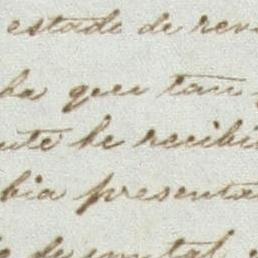 estado de rev
ha que tan
nte he recibi
bia presenta